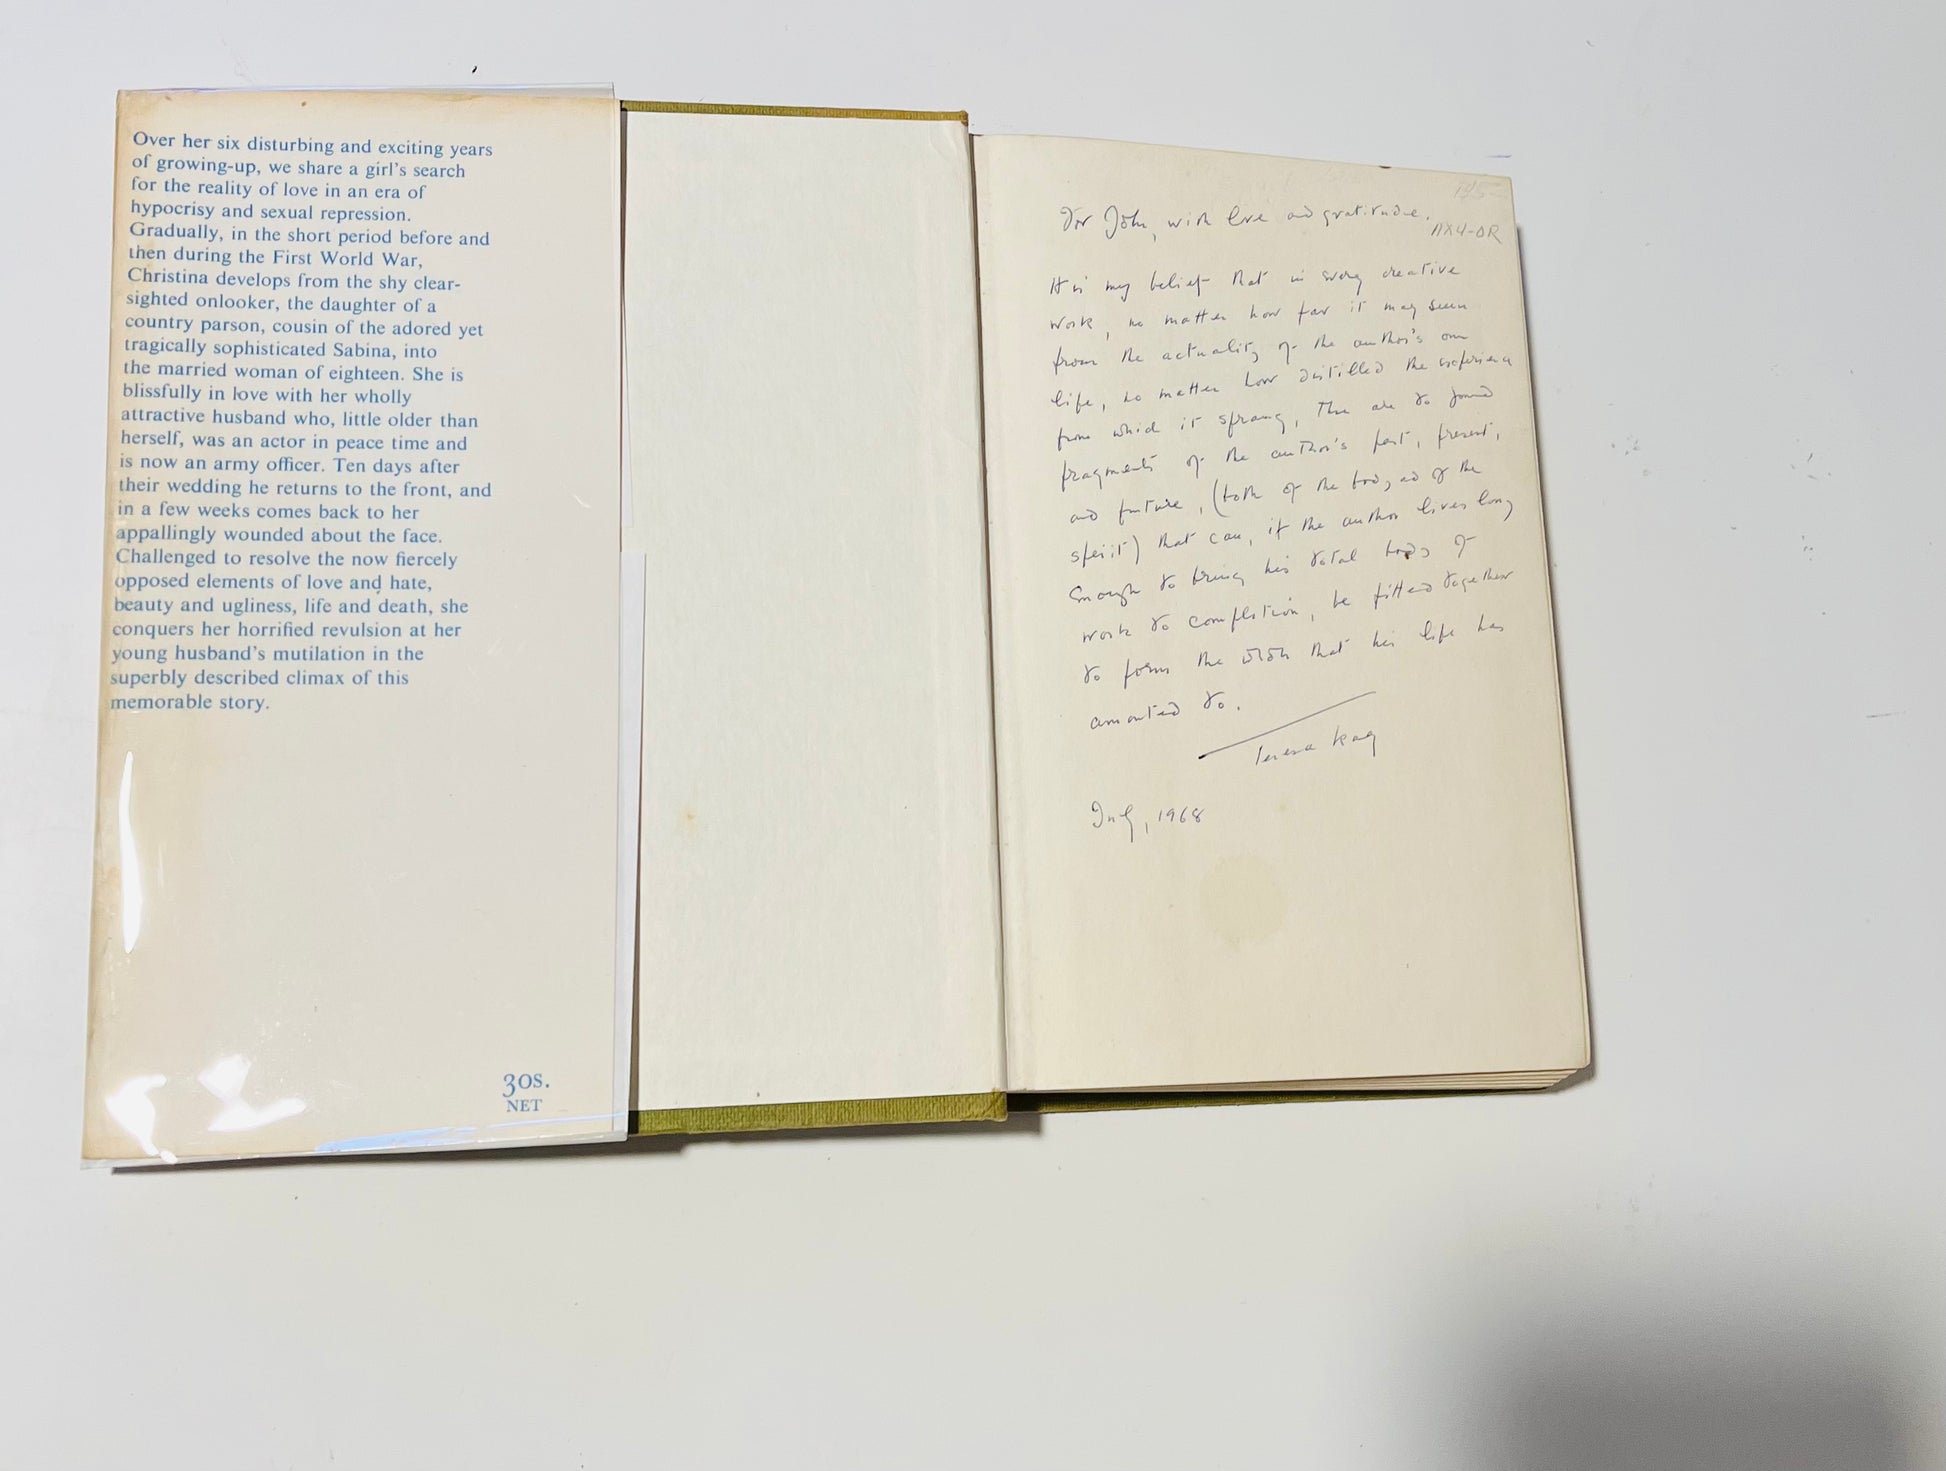 Over her six disturbing and exciting years
of growing-up, we share a girl's search
for the reality of love in an era of
hypocrisy and sexual repression.
Gradually, in the short period before and
then during the First World War,
Christina develops from the shy clear-
sighted onlooker, the daughter of a
country parson, cousin of the adored yet
tragically sophisticated Sabina, into
the married woman of eighteen. She is
blissfully in love with her wholly
attractive husband who, little older than
herself, was an actor in peace time and
is now an army officer. Ten days after
their wedding he returns to the front, and
in a few weeks comes back to her
appallingly wounded about the face.
Challenged to resolve the now fiercely
opposed elements of love and hate,
beauty and ugliness, life and death, she
conquers her horrified revulsion at her
young husband's mutilation in the
superbly described climax of this
memorable story.
30s.
NET
For John, with love and gratitude.
AX4-OR
It is my belief that in every creative
work, no matter how far it may seem
from the actuality of the author's own
life, no matter how distilled the experience
from which it sprang, there are to found
fragments of the author's past, present,
and future, (both of the body, and of the
spirit) that can, if the author lives long
enough to bring his total body of
work to completion, be fitted together
to form the whole that his life has
amounted to.
Teresa Kay
July, 1968